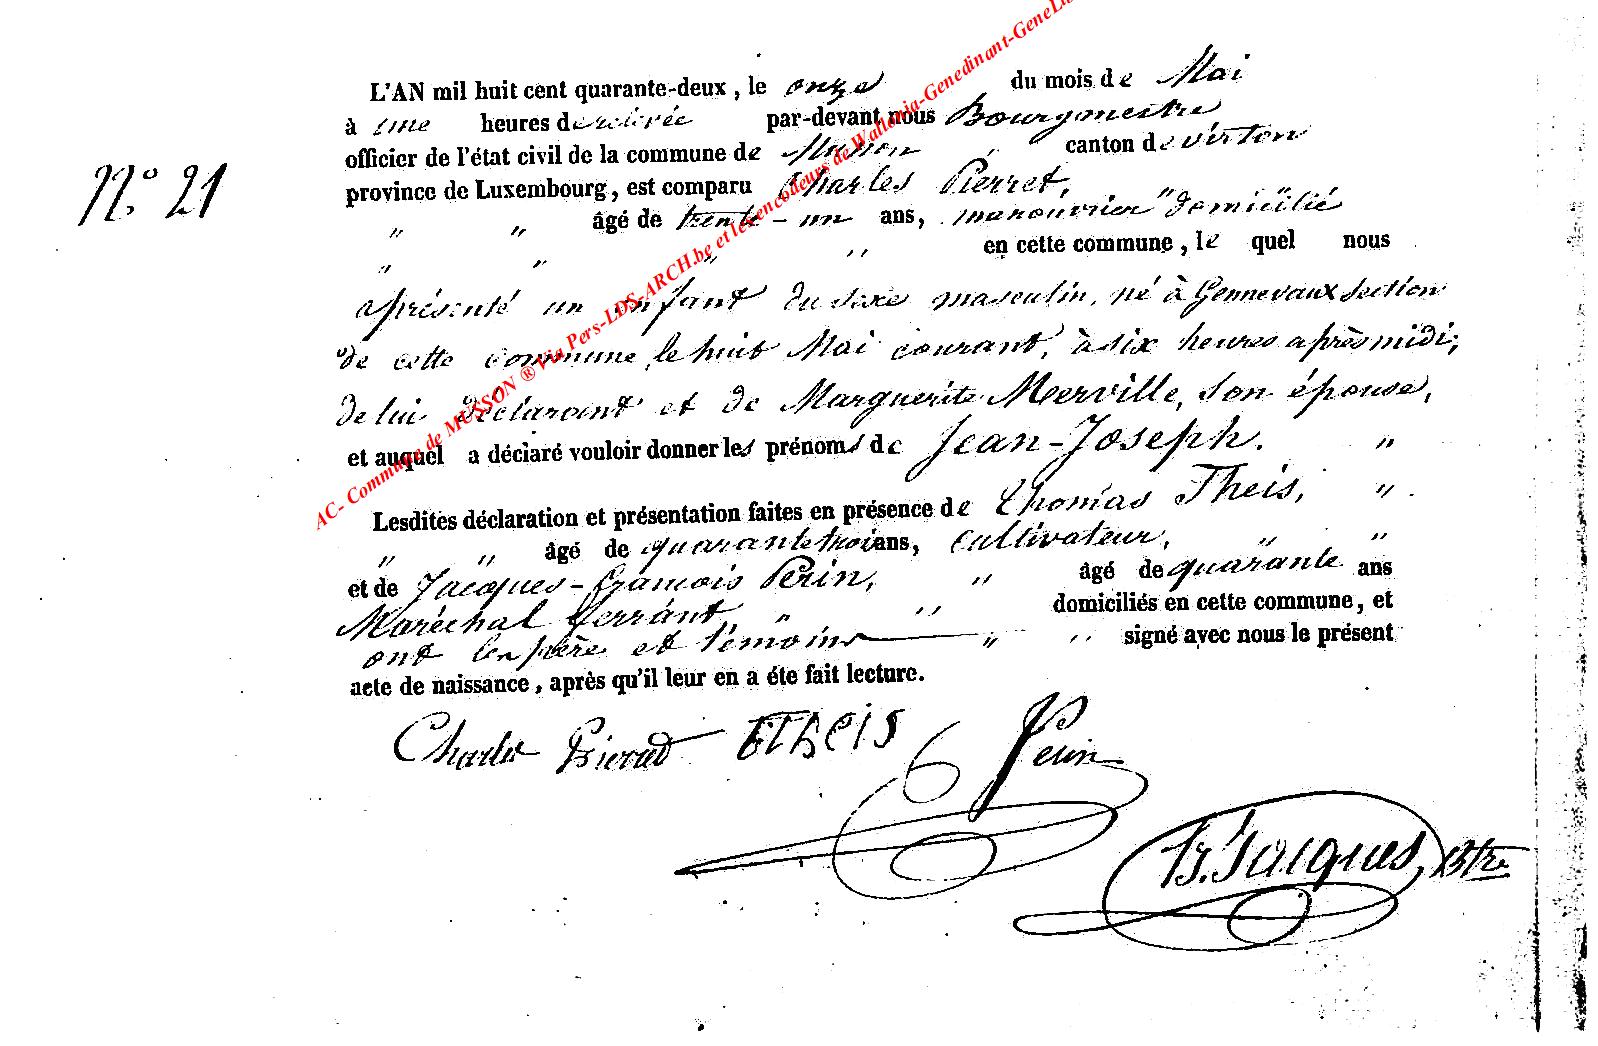 L'AN mil huit cent quarante-deux, le onze du mois de Mai
N° 21
à une heures de relevée par-devant nous Bourgmestre
officier de l'état civil de la commune de Musson canton de virton
province de Luxembourg, est comparu Charles Pierret,
" " âgé de trente-un ans, manouvrier " domicilié
" " " " en cette commune, le quel nous
a présenté un enfant du sexe masculin, né à Gennevaux section
de cette commune, le huit Mai courant, à six heures après midi;
de lui déclarant et de Marguerite Merville, son épouse,
et auquel a déclaré vouloir donner les prénoms de Jean-Joseph. "
Lesdites déclaration et présentation faites en présence de thomas Theis, "
" " âgé de quarante trois ans, cultivateur, " "
et de Jacques-françois Perin, " âgé de quarante ans
Maréchal ferrant, " " domiciliés en cette commune, et
ont les père et témoins " " signé avec nous le présent
acte de naissance, après qu'il leur en a éte fait lecture.
Charles Pierred THEIS Perin
Jacques, Btre
AC- Commune de MUSSON ® Via Pers-LDS-ARCH.be et les encodeurs de Wallonia-Genedinant-GeneLu